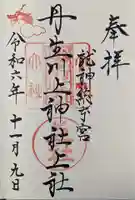 奉拝
龍神総本宮
丹生川上神社上社
令和六年十一月九日